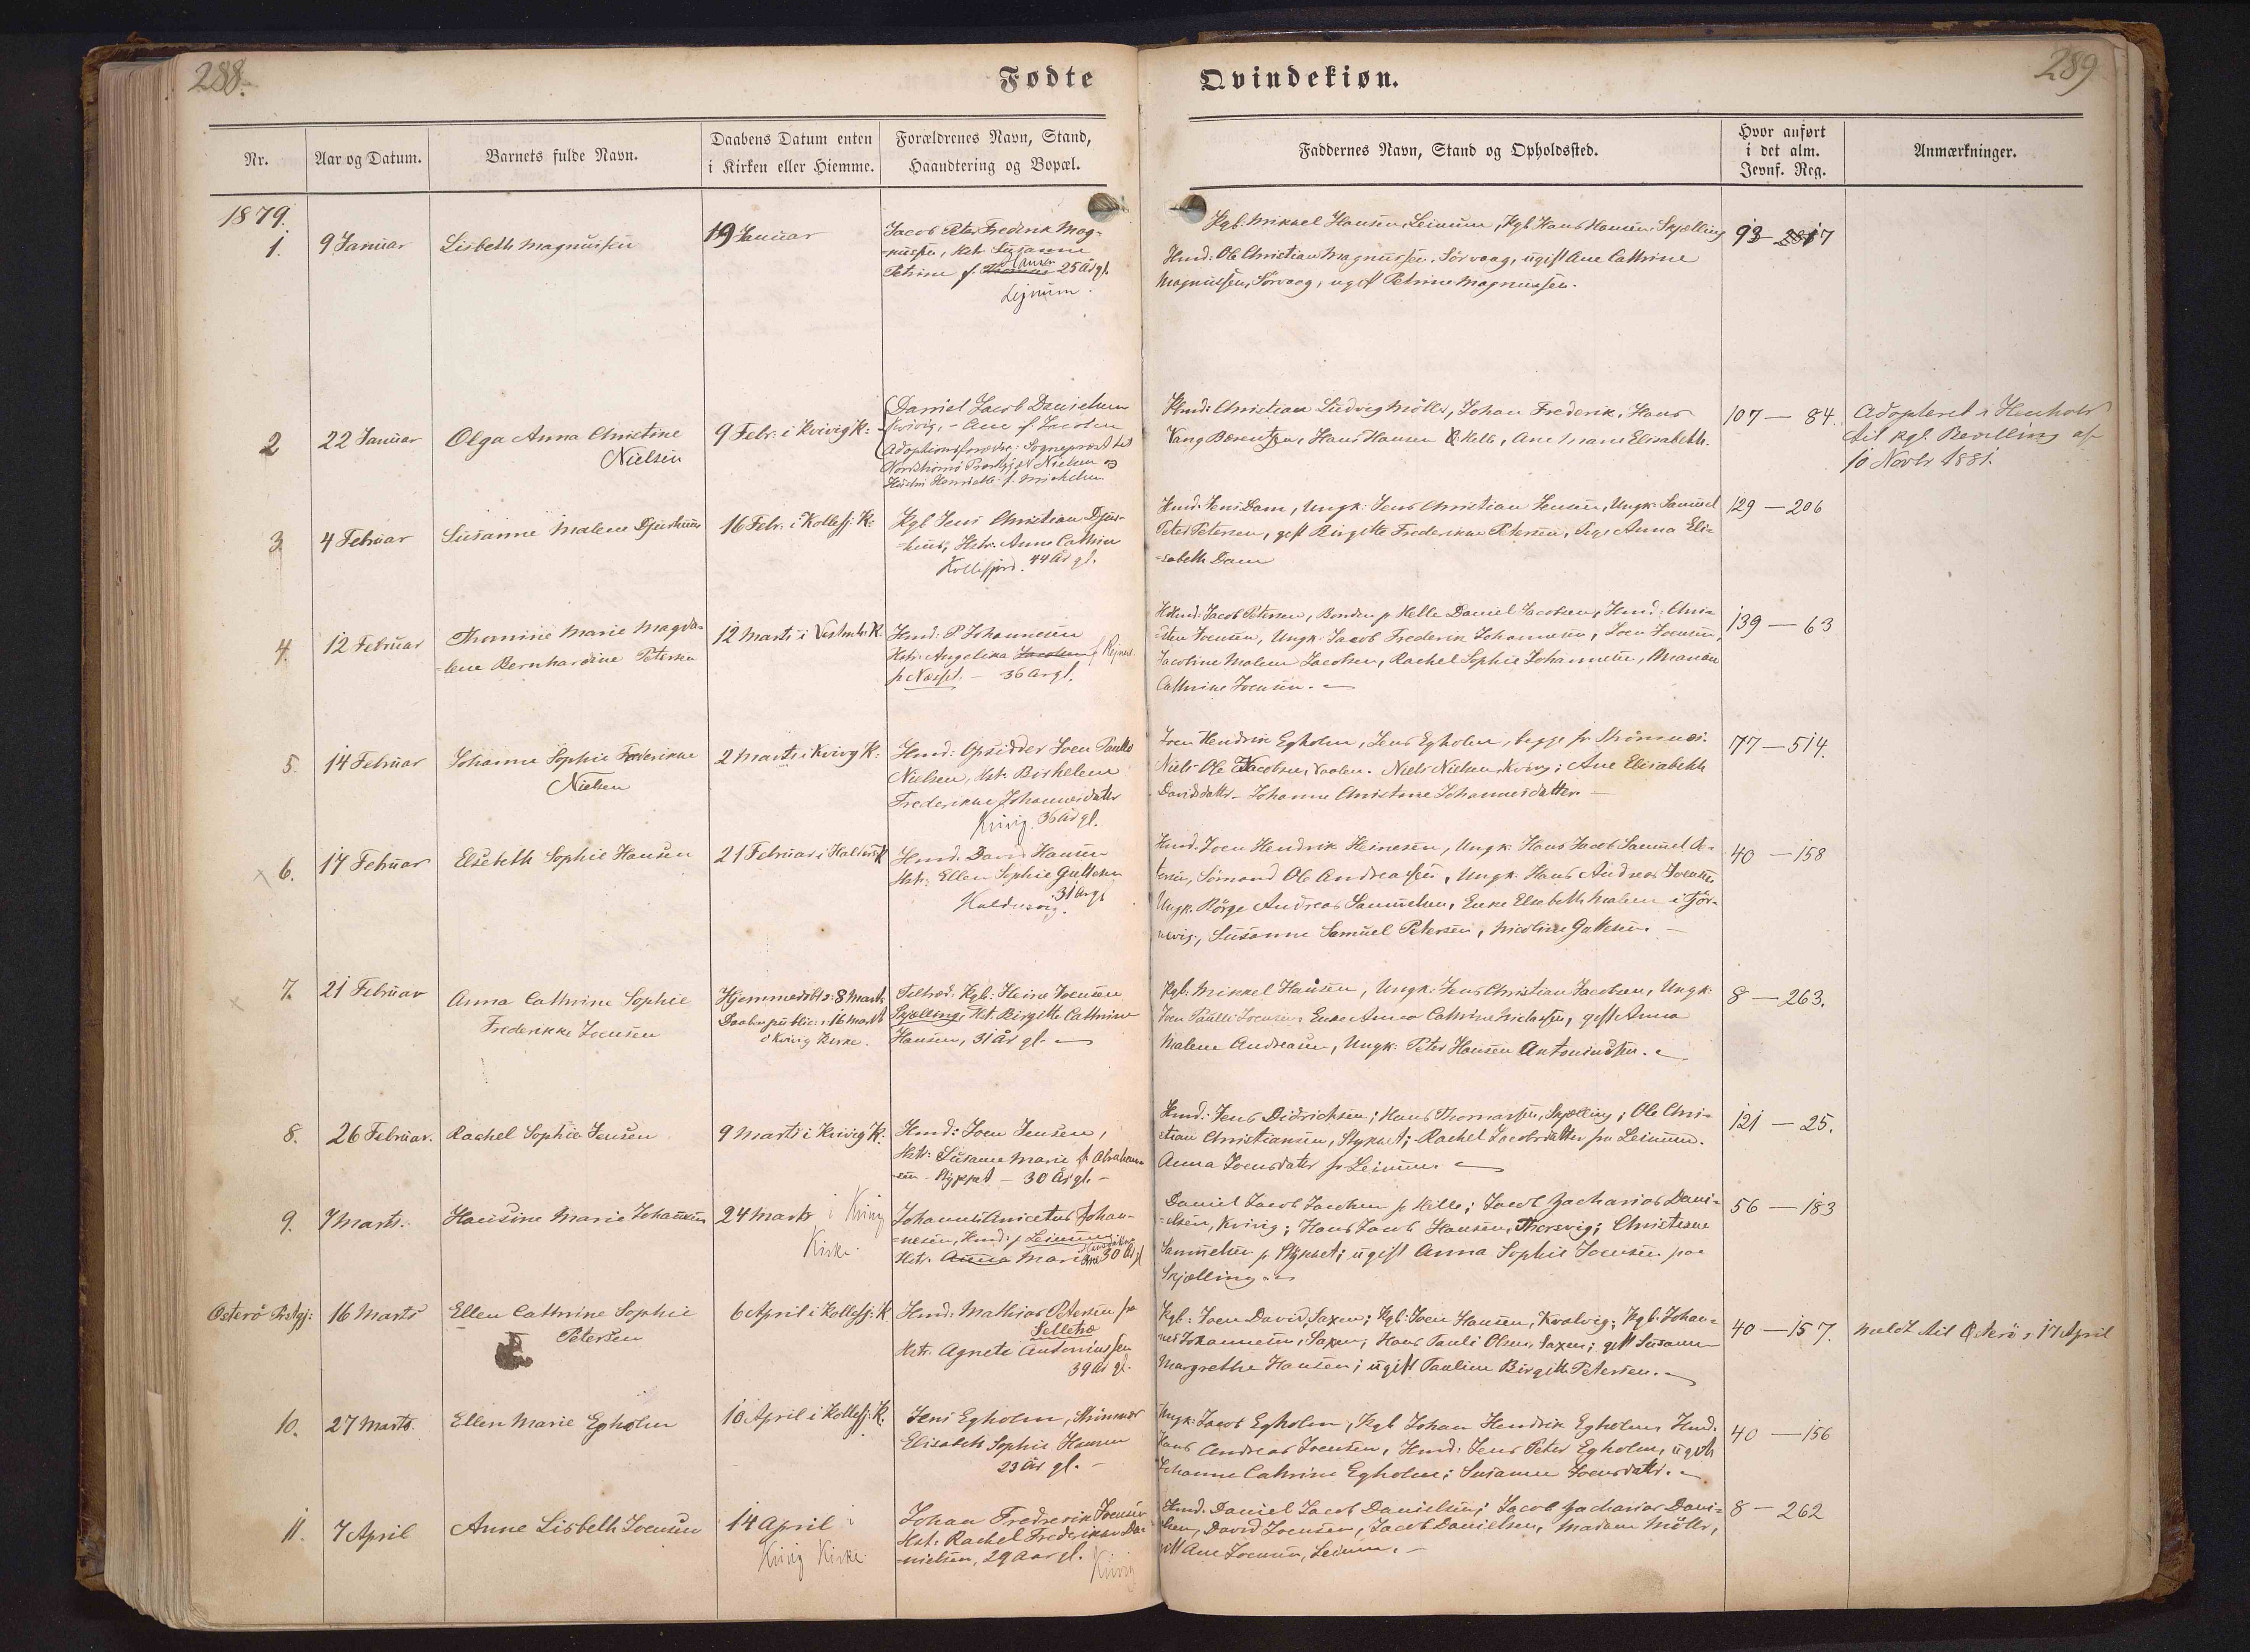 288.
289
Fødte
Qvindekiøn.
Nr.
Aar og Datum.
Barnets fulde Navn.
Daabens Datum enten
i Kirken eller Hiemme.
Forældrenes Navn, Stand,
Haandtering og Bopæl.
Faddernes Navn, Stand og Opholdssted.
Hvor anført
i det alm.
Jevnf. Reg.
Anmærkninger.
1879.
1.
9 Januar
Lisbeth Magnussen
19 Januar
Jacob Peter Frederik Mag-
nussen, Hstr. Susanne
Petrine f. Hansen 25 År gl.
Lejnum.
Kgb. Mikkel Hansen, Leinum, Kgb Hans Hansen Skjælling
Hmd: Ole Christian Magnussen, Sörvaag, ugift Ane Cathrine
Magnussen, Sörvaag, ugift Petrine Magnussen.
93 — 2817
2
22 Januar
Olga Anna Christine
Nielsen
9 Febr: i Kvivig K:
Daniel Jacob Danielsen
Kvivig, - Ane f. Jacobsen
Adoptionsforældre: Sognepræst til
Nordströmö Præstgj. Nielsen og
Hustru Henriette f. Michelsen
Hmd: Christian Ludvig Möller, Johan Frederik, Hans
Vang Bærentsen, Hans Hansen Helle, Ane Marie Elisabeth.
107 — 84.
Adopteret i Henhold
til kgl. Bevilling af
10 Novbr 1881.
3
4 Februar
Susanne Malene Djurhuus
16 Febr. i Kollefj: K:
Kgb Jens Christian Djur-
huus, Hstr: Anne Cathrine
Kollefjord. 44 År gl.
Hmd. Jens Dam, Ungk: Jens Christian Jensen, Ungk. Samuel
Peter Petersen, gift Birgitte Frederikke Petersen, Pige Anna Eli-
sabeth Dam
129 — 206
4.
12 Februar
Thomine Marie Magda-
lene Bernhardine Petersen
12 Marts i Vestmh: K.
Hmd: P Johannesen
Hstr. Angelika Jacobsen f
36 År gl.
Hmd: Jacob Petersen, Bonden p Helle Daniel Jacobsen, Hmd: Chri-
sten Joensen, Ungk. Jacob Frederik Johannesen, Joen Joensen,
Jacobine Malene Jacobsen, Rachel Sophie Johannesen, Mariane
Cathrine Joensen.
139 — 63
5.
14 Februar
Johanne Sophie Frederikke
Nielsen
2 Marts i Kvivig K:
Hmd: Opsidder Joen Paulli
Nielsen, Hstr. Birthe
Frederikke Johannesdatter
Kvivig. 36 År gl.
Joen Hendrik Egholm, Jens Egholm, begge fr Strömnæs.
Niels Ole Jacobsen, Vaalen. Niels Nielsen Kvivig; Ane Elisabeth
Davidsdatter - Johanne Christine Johannesdatter.
77 — 514.
6.
17 Februar
Elsebeth Sophie Hansen
21 Februar i Haldersv K
Hmd. David Hansen
Hstr: Ellen Sophie Guttesen
31 År gl
Haldersvig.
Hmd. Joen Hendrik Heinesen, Ungk: Hans Jacob Samuel Pe-
tersen, Sömand Ole Andreassen, Ungk. Hans Andreas Joensen
Ungk. Börge Andreas Samuelsen, Enke Elsebeth Malene i Tjör-
nevig, Susanne Samuel Petersen, Nicoline Guttesen.
40 — 158
7.
21 Februar
Anna Cathrine Sophie
Frederikke Joensen
Hjemmedöbt d: 8 Marts
Daaben public: d: 16 Marts
i Kvivig Kirke.
Kgb: Heine Joensen
Skjælling, Hst. Birgitte Cathrine
Hansen, 31 År gl.
Kgb. Mikkel Hansen, Ungk: Jens Christian Jacobsen, Ungk:
Joen Paulli Joensen Enke Anna Cathrine Niclassen, gift Anna
Malene Andreasen, Ungk: Peter Hansen Antoniussen.
8 — 263.
8.
26 Februar.
Rachel Sophie Jensen
9 Marts i Kvivig K.
Hmd: Joen Jensen,
Hstr: Susanne Marie f. Abraham-
sen - Stykket - 30 År gl. -
Hmd. Jens Didrichsen; Hans Thomassen, Skjælling; Ole Chri-
stian Christiansen, Stykket; Rachel Jacobsdatter fra Leinum.
Anna Joensdatter fr Leinum.
121 — 25.
9.
7 Marts.
Hansine Marie Johannesen
24 Marts i Kvivig
Kirke.
Johannes Anicetus Johan-
nesen, Hmd: p Leinum
Hstr. Anna Marie 30 År gl
Daniel Jacob Jacobsen p Helle; Jacob Zacharias Dani-
elsen, Kvivig; Hans Jacob Hansen, Thorsvig; Christiane
Samuelsen p Stykket; ugift Anna Sophie Joensen paa
Skjælling.
56 — 183
Österö Prstgj:
16 Marts
Ellen Cathrine Sophie
Petersen
6 April i Kollefj: K
Hmd. Mathias Petersen fra
Selletræ
Hstr. Agnete Antoniussen
39 År gl.
Kgb: Joen David, Saxen; Kgb: Joen Hansen, Kvalvig; Kgb: Johan-
nes Johannesen, Saxen; Hans Pauli Olsen, Saxen; gift Susanne
Margrethe Hansen; ugift Pauline Birgitte Petersen.
40 — 157.
Meldt til Österö d 17 April
10.
27 Marts.
Ellen Marie Egholm
10 April i Kollefj: K.
Jens Egholm, Strömnæs
Elisabeth Sophie Hansen
23 År gl. -
Ungk: Jacob Egholm, Kgb Johan Hendrik Egholm, Hmd.
Hans Andreas Joensen, Hmd: Jens Peter Egholm, ugift
Johanne Cathrine Egholm; Susanne Joensdatter.
40 — 156
11.
7 April
Anne Lisbeth Joensen
14 April i
Kvivig Kirke.
Johan Fredrerik Joensen
Hst. Rachel Frederikke Da-
nielsen, 29 Aar gl.
Kvivig
Hmd. Daniel Jacob Danielsen; Jacob Zacharias Dani-
elsen, David Joensen, Jacob Danielsen, Madam Möller,
gift Ane Joensen, Leinum.
8 — 262